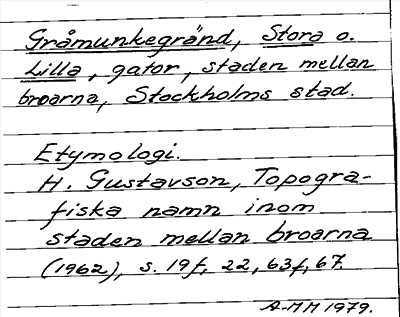 Gråmunkegränd, Stora o.
Lilla, gator, staden mellan
broarna, Stockholms stad.
Etymologi.
H. Gustavson, Topogra-
fiska namn inom
staden mellan broarna
(1962), s. 19f, 22, 63f, 67.
A-MM 1979.